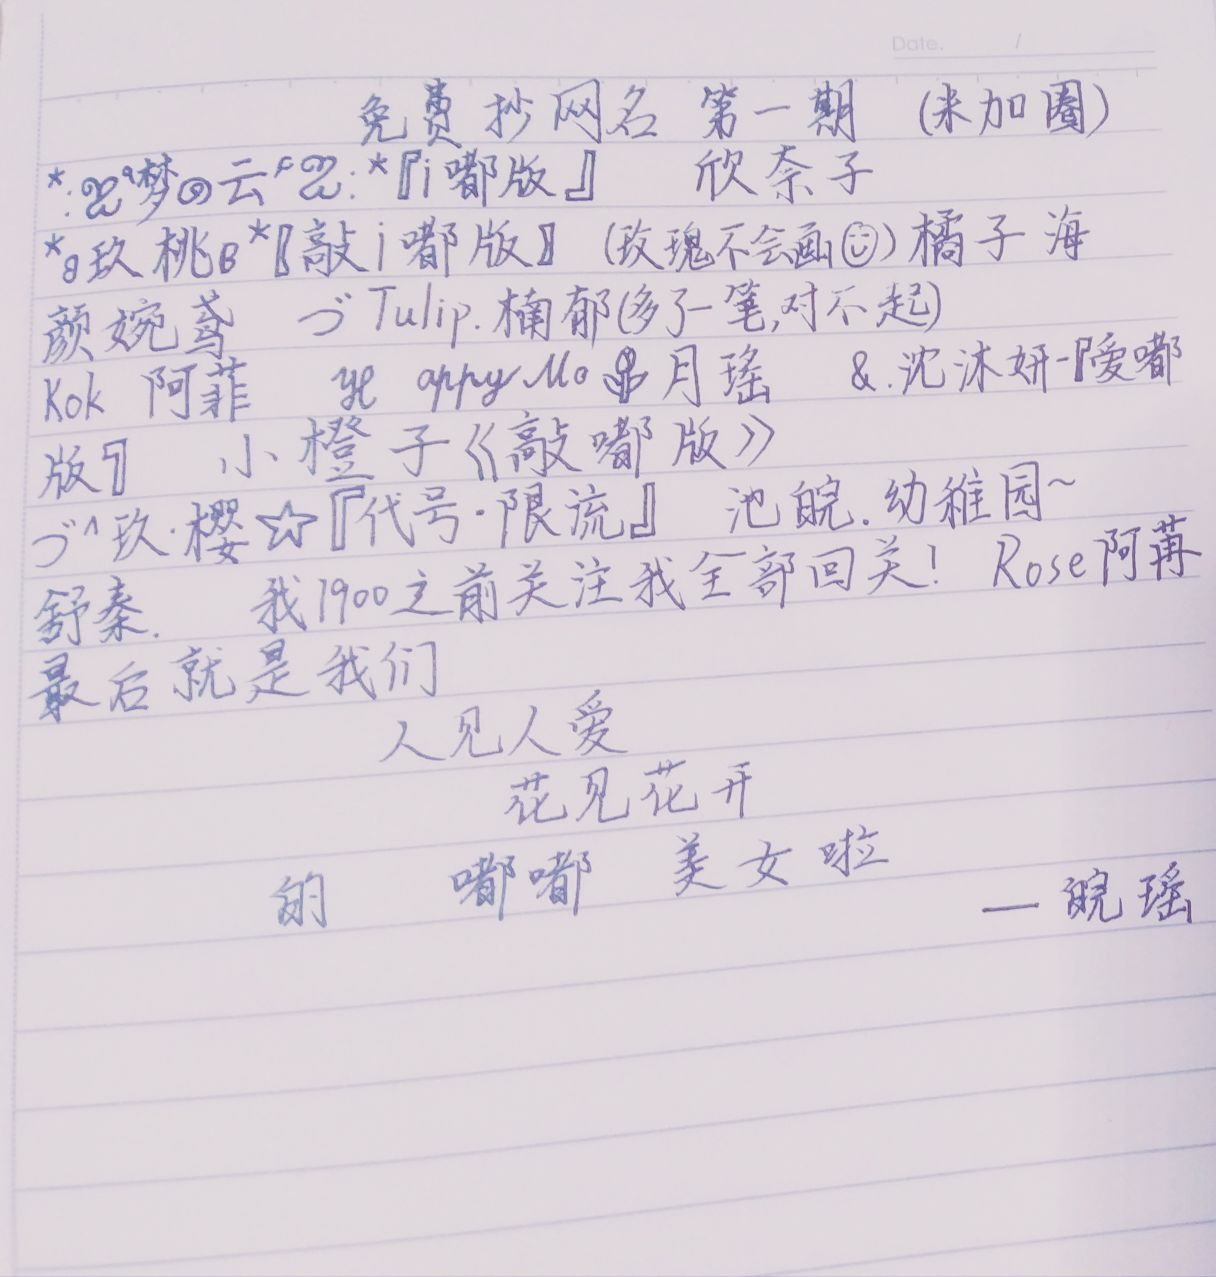 Date. /
免费抄网名 第一期 (来加圈)
*:ஐ٩梦૭云۶ஐ:*『i嘟版』 欣奈子
*8玖桃B*〖敲i嘟版〗 (玫瑰不会画☺) 橘子海
颜婉鸢 づTulip.楠郁(多了一笔,对不起)
Kok 阿菲 ye appy Mo 月瑶 &.沈沐妍-『爱嘟
版』 小橙子《敲嘟版》
づ^玖·樱☆『代号·限流』 池皖.幼稚园~
舒秦. 我1900之前关注我全部回关! Rose阿苒
最后就是我们
人见人爱
花见花开
的 嘟嘟 美女啦
— 皖瑶